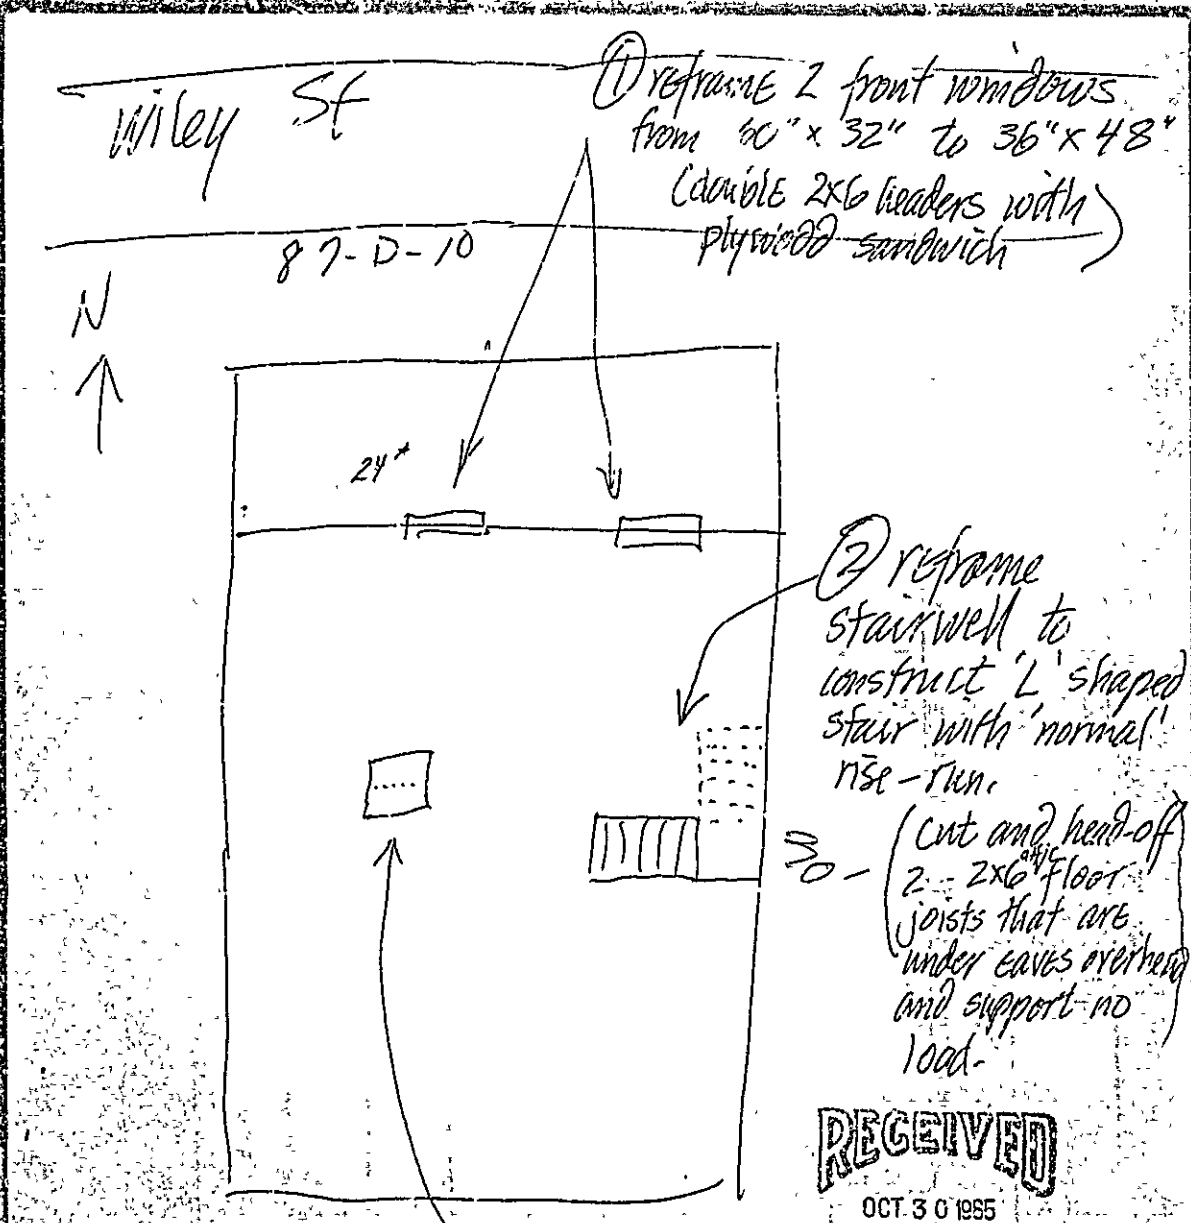 Wiley St
① reframe 2 front windows
from 60" x 32" to 36" x 48"
(double 2x6 headers with
plywood sandwich)
87-D-10
N
24"
② reframe
stairwell to
construct 'L' shaped
stair with 'normal'
rise-run.
(Cut and head-off
2 - 2x6 attic floor
joists that are
under eaves overhead
and support no
load-
RECEIVED
OCT 30 1985